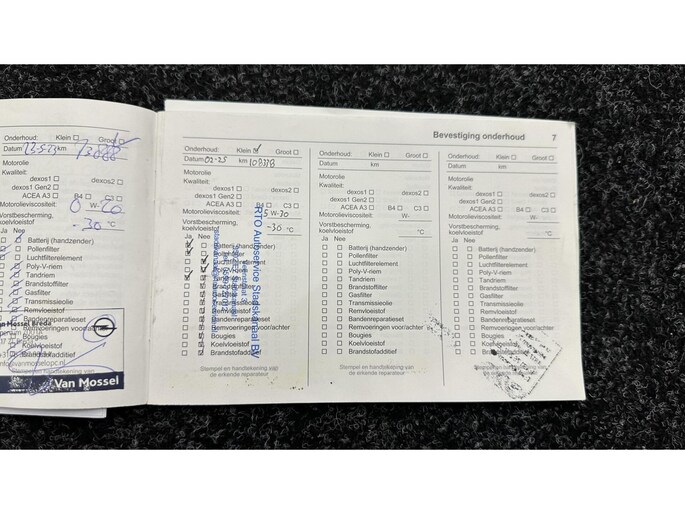 Onderhoud: Klein Groot
Datum 22-5-23 km
Motorolie
Kwaliteit:
dexos1 dexos2
dexos1 Gen2
ACEA A3 B4 C3
Motorolieviscositeit: 0 W-20
Vorstbescherming,
koelvloeistof -30 °C
Ja Nee
Batterij (handzender)
Pollenfilter
Luchtfilterelement
Poly-V-riem
Tandriem
Brandstoffilter
Gasfilter
Transmissieolie
Remvloeistof
Bandenreparatieset
Remvoeringen voor/achter
Bougies
Koelvloeistof
Brandstofadditief
Van Mossel
Bevestiging onderhoud 7
Onderhoud: Klein Groot
Datum 02-25 km
Motorolie
Kwaliteit:
dexos1 dexos2
dexos1 Gen2
ACEA A3 B4 C3
Motorolieviscositeit: 5 W-30
Vorstbescherming,
koelvloeistof -30 °C
Ja Nee
Batterij (handzender)
Pollenfilter
Luchtfilterelement
Poly-V-riem
Tandriem
Brandstoffilter
Gasfilter
Transmissieolie
Remvloeistof
Bandenreparatieset
Remvoeringen voor/achter
Bougies
Koelvloeistof
Brandstofadditief
Stempel en handtekening van
de erkende reparateur
RTO Autoservice Stadskanaal BV
Onderhoud: Klein Groot
Datum km
Motorolie
Kwaliteit:
dexos1 dexos2
dexos1 Gen2
ACEA A3 B4 C3
Motorolieviscositeit: W-
Vorstbescherming,
koelvloeistof °C
Ja Nee
Batterij (handzender)
Pollenfilter
Luchtfilterelement
Poly-V-riem
Tandriem
Brandstoffilter
Gasfilter
Transmissieolie
Remvloeistof
Bandenreparatieset
Remvoeringen voor/achter
Bougies
Koelvloeistof
Brandstofadditief
Stempel en handtekening van
de erkende reparateur
Onderhoud: Klein Groot
Datum km
Motorolie
Kwaliteit:
dexos1 dexos2
dexos1 Gen2
ACEA A3 B4 C3
Motorolieviscositeit: W-
Vorstbescherming,
koelvloeistof °C
Ja Nee
Batterij (handzender)
Pollenfilter
Luchtfilterelement
Poly-V-riem
Tandriem
Brandstoffilter
Gasfilter
Transmissieolie
Remvloeistof
Bandenreparatieset
Remvoeringen voor/achter
Bougies
Koelvloeistof
Brandstofadditief
Stempel en handtekening van
de erkende reparateur